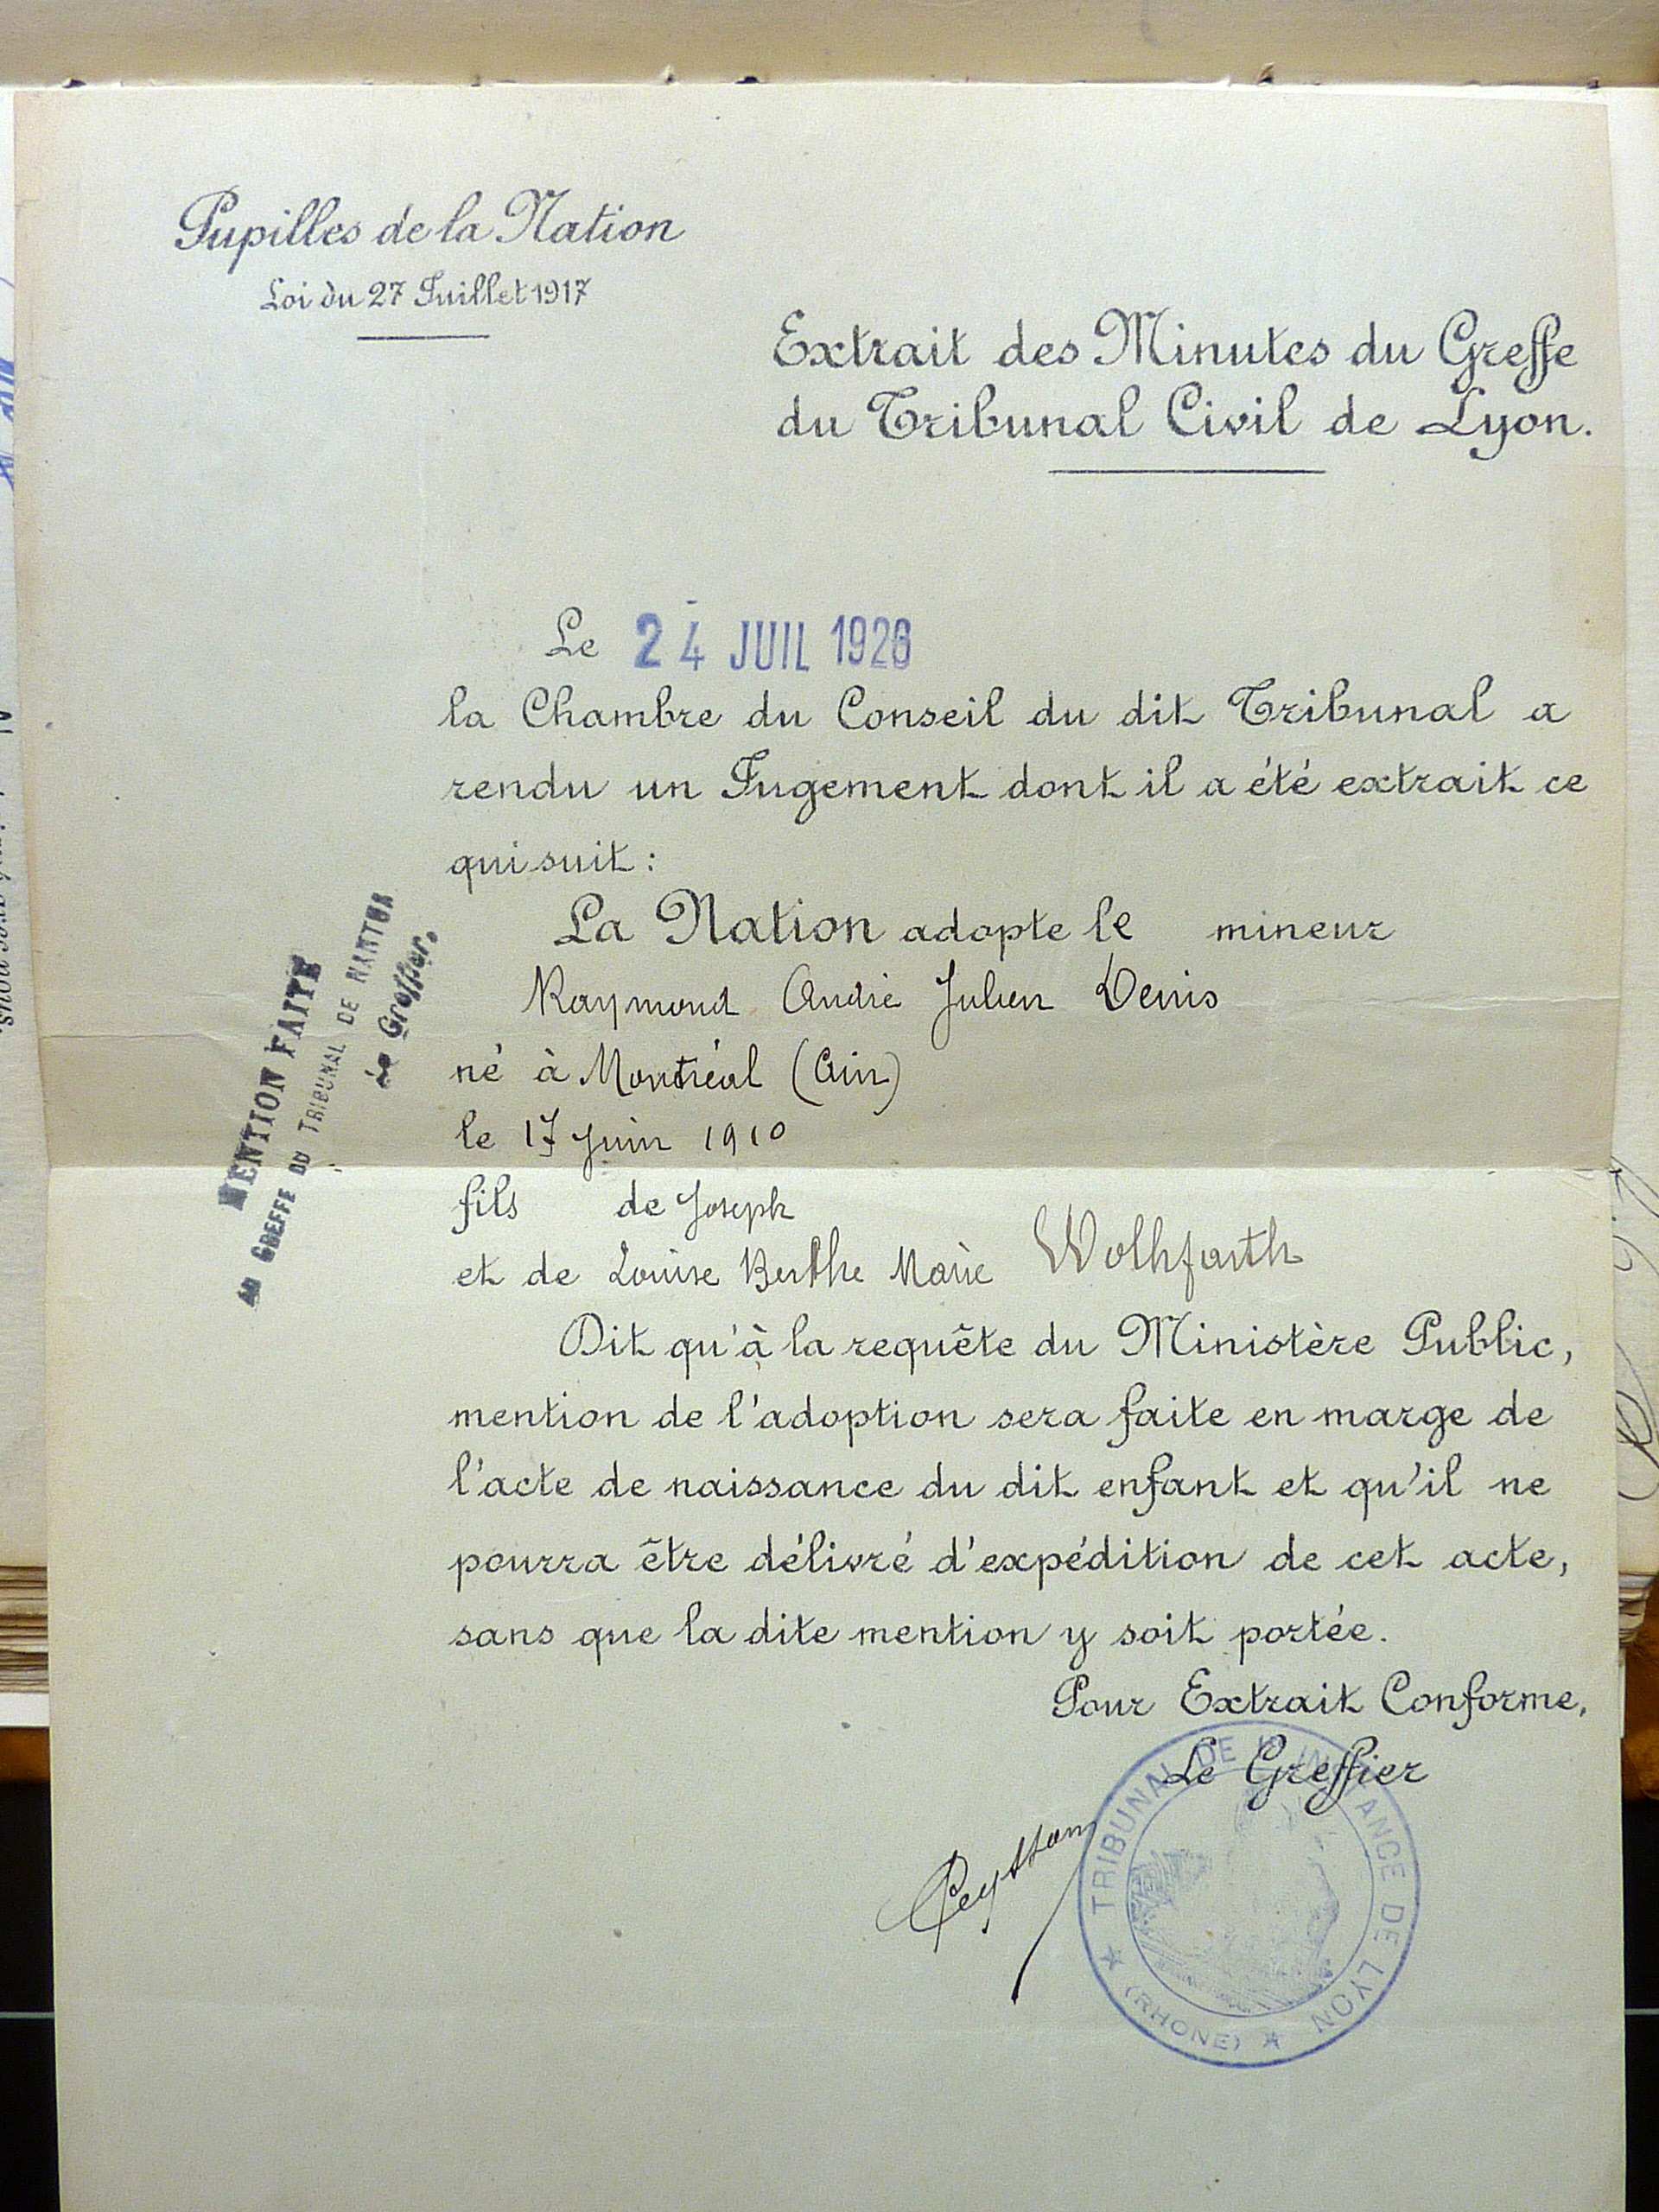 Pupilles de la Nation
Loi du 27 Juillet 1917
Extrait des Minutes du Greffe
du Tribunal Civil de Lyon.
Le 24 JUIL 1926
la Chambre du Conseil du dit Tribunal a
rendu un Jugement dont il a été extrait ce
qui suit :
La Nation adopte le mineur
Raymond André Julien Denis
né à Montréal (Ain)
le 17 Juin 1910
fils de Joseph
et de Louise Berthe Marie Wolhfarth
Dit qu'à la requête du Ministère Public,
mention de l'adoption sera faite en marge de
l'acte de naissance du dit enfant et qu'il ne
pourra être délivré d'expédition de cet acte,
sans que la dite mention y soit portée.
Pour Extrait Conforme,
Le Greffier
MENTION FAITE
AU GREFFE DU TRIBUNAL DE NANTUA
Le Greffier.
TRIBUNAL DE 1re INSTANCE DE LYON
(RHONE)